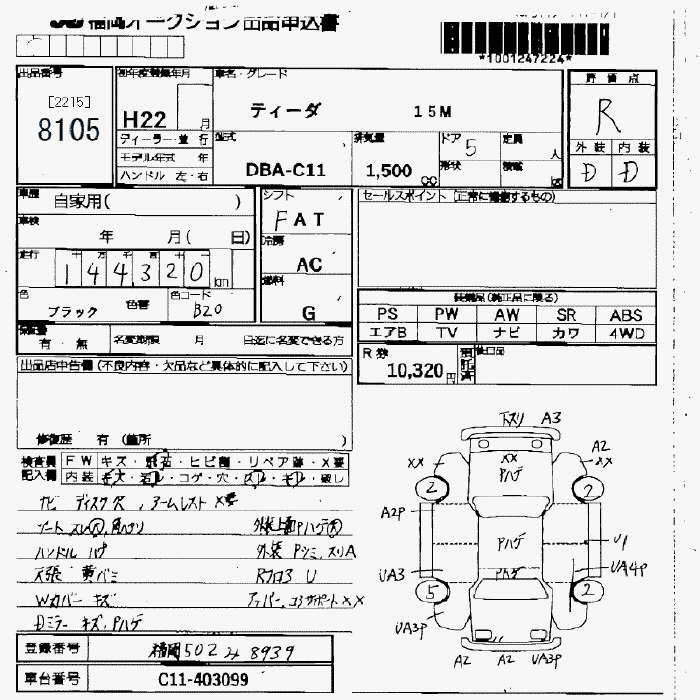 福岡オークション出品申込書
*1001247224*
出品番号
[2215]
8105
初年度登録年月
H22 月
ディーラー・並行
モデル年式 年
ハンドル 左・右
車名・グレード
ティーダ 15M
型式
DBA-C11
排気量
1,500 cc
ドア 5
形状
定員 人
積載 kg
評価点
R
外装 内装
D D
車歴
自家用( )
車検
年 月( 日)
走行 十 万 千 百 十
144320 km
色
ブラック 色替
色コード
B20
シフト
FAT
冷房
AC
燃料
G
セールスポイント (正常に機能するもの)
装備品(純正品に限る)
PS PW AW SR ABS
エアB TV ナビ カワ 4WD
保証書
有・無
名変期限 月 日迄に名変できる方
R券
10,320円
預託済
後日品
出品店申告欄 (不良内容・欠品など具体的に記入して下さい)
修復歴 有 (箇所 )
検査員記入欄
FW キズ・飛石・ヒビ割・リペア跡・X要
内装 キズ・汚レ・コゲ・穴・スレ・キレ・破レ
ナビ ディスク欠, アームレスト X
シート スレ
ハンドル ハゲ 外装 Pシミ, スリA
天張 黄バミ Rフロア U
Wカバー キズ アッパー, コアサポート XX
Dミラー キズ, Pハゲ
下スリ A3
XX
XX
Pハゲ
A2
XX
2
2
A2P
Pハゲ
U1
Pハゲ
UA3
UA4P
5
2
UA3P
A2
A2
UA3P
登録番号
福岡502 み 8939
車台番号
C11-403099